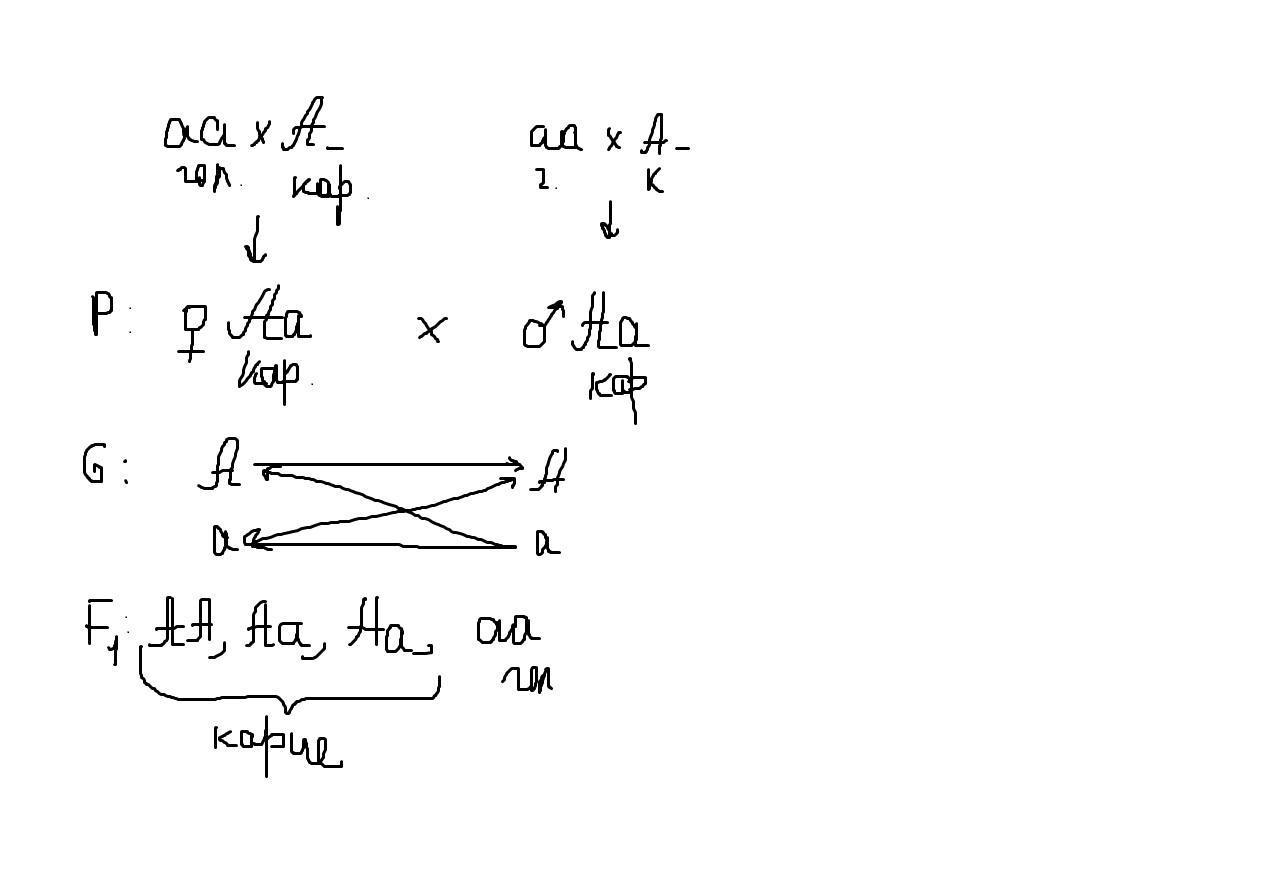 аа х А_ аа х А_
гол. кар. г. к
Р: ♀ Аа х ♂ Аа
кар. кар
G: А А
а а
F₁: АА, Аа, Аа, аа
гол
карие